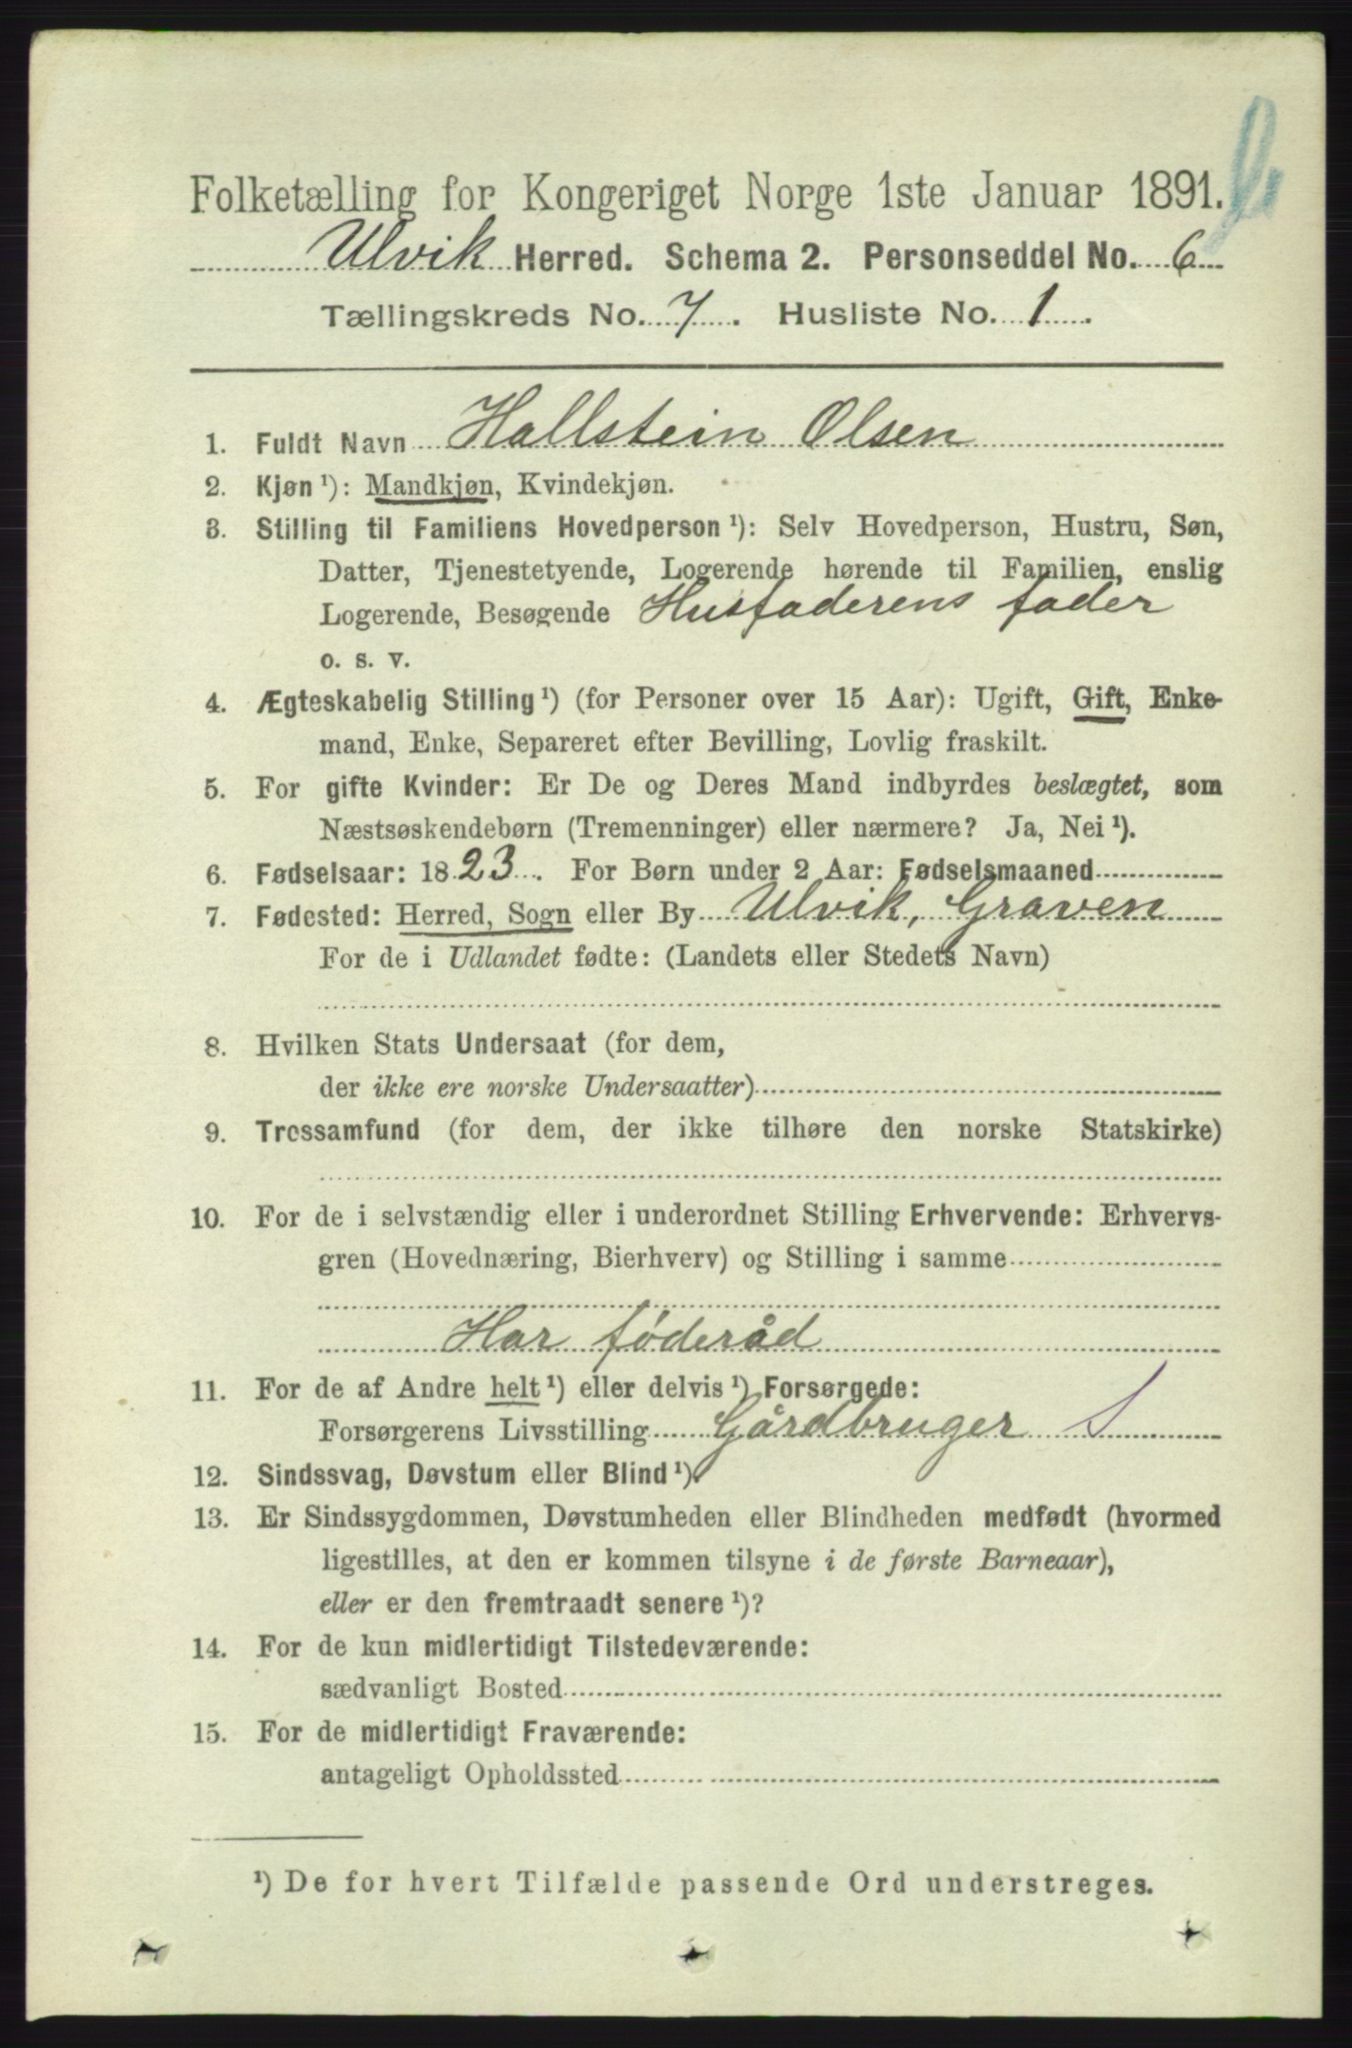 Folketælling for Kongeriget Norge 1ste Januar 1891.
Ulvik Herred. Schema 2. Personseddel No. 6
Tællingskreds No. 7. Husliste No. 1.
1. Fuldt Navn Hallstein Olsen
2. Kjøn ¹): Mandkjøn, Kvindekjøn.
3. Stilling til Familiens Hovedperson ¹): Selv Hovedperson, Hustru, Søn,
Datter, Tjenestetyende, Logerende hørende til Familien, enslig
Logerende, Besøgende Husfaderens fader
o. s. v.
4. Ægteskabelig Stilling ¹) (for Personer over 15 Aar): Ugift, Gift, Enke-
mand, Enke, Separeret efter Bevilling, Lovlig fraskilt.
5. For gifte Kvinder: Er De og Deres Mand indbyrdes beslægtet, som
Næstsøskendebørn (Tremenninger) eller nærmere? Ja, Nei ¹).
6. Fødselsaar: 1823. For Børn under 2 Aar: Fødselsmaaned
7. Fødested: Herred, Sogn eller By Ulvik, Graven
For de i Udlandet fødte: (Landets eller Stedets Navn)
8. Hvilken Stats Undersaat (for dem,
der ikke ere norske Undersaatter)
9. Trossamfund (for dem, der ikke tilhøre den norske Statskirke)
10. For de i selvstændig eller i underordnet Stilling Erhvervende: Erhvervs-
gren (Hovednæring, Bierhverv) og Stilling i samme
Har føderåd
11. For de af Andre helt ¹) eller delvis ¹) Forsørgede:
Forsørgerens Livsstilling Gårdbruger S
12. Sindssvag, Døvstum eller Blind ¹).
13. Er Sindssygdommen, Døvstumheden eller Blindheden medfødt (hvormed
ligestilles, at den er kommen tilsyne i de første Barneaar),
eller er den fremtraadt senere ¹)?
14. For de kun midlertidigt Tilstedeværende:
sædvanligt Bosted
15. For de midlertidigt Fraværende:
antageligt Opholdssted
¹) De for hvert Tilfælde passende Ord understreges.